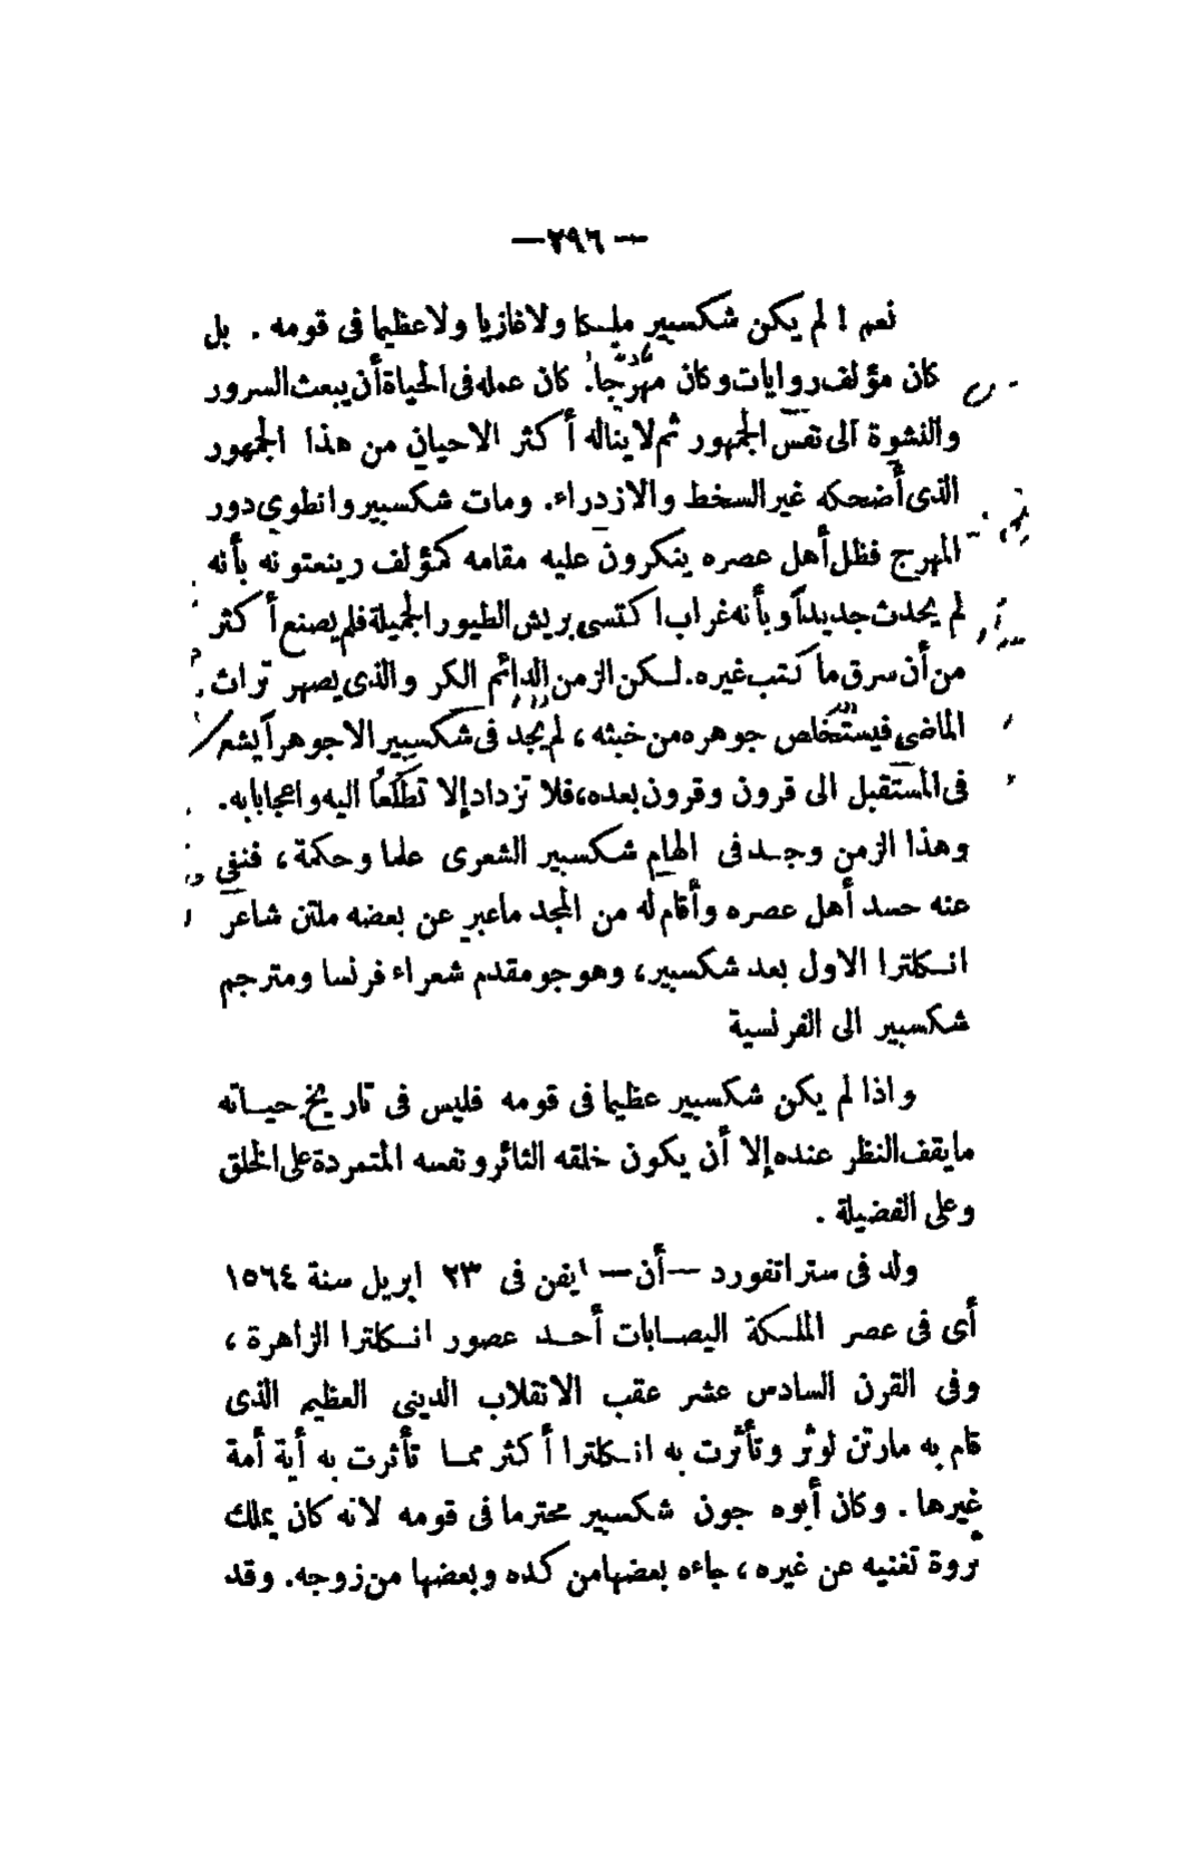 — ٢٩٦ —
نعم ! لم يكن شكسبير ملكا ولا غازيا ولا عظيما فى قومه . بل
كان مؤلف روايات وكان مهرّجا. كان عمله فى الحياة أن يبعث السرور
والنشوة الى نفس الجمهور ثم لا يناله أكثر الاحيان من هذا الجمهور
الذى أضحكه غير السخط والازدراء. ومات شكسبير وانطوى دور
المهرج فظل أهل عصره ينكرون عليه مقامه كمؤلف وينعتونه بأنه
لم يحدث جديداً وبأنه غراب اكتسى بريش الطيور الجميلة فلم يصنع أكثر
من أن سرق ما كتب غيره. لكن الزمن الدائم الكر والذى يصهر تراث
الماضى فيستخلص جوهره من خبثه ، لم يجد فى شكسبير الا جوهراً يشع
فى المستقبل الى قرون وقرون بعده، فلا تزداد إلا تطلعاً اليه واعجابا به.
وهذا الزمن وجد فى الهام شكسبير الشعرى علما وحكمة ، فنفى
عنه حسد أهل عصره وأقام له من المجد ما عبر عن بعضه ملتن شاعر
انكلترا الاول بعد شكسبير، وهوجو مقدم شعراء فرنسا ومترجم
شكسبير الى الفرنسية
واذا لم يكن شكسبير عظيما فى قومه فليس فى تاريخ حياته
ما يقف النظر عنده إلا أن يكون خلقه الثائر ونفسه المتمردة على الخلق
وعلى الفضيلة .
ولد فى ستراتفورد — أن — ايفن فى ٢٣ ابريل سنة ١٥٦٤
أى فى عصر الملكة اليصابات أحد عصور انكلترا الزاهرة ،
وفى القرن السادس عشر عقب الانقلاب الدينى العظيم الذى
قام به مارتن لوثر وتأثرت به انكلترا أكثر مما تأثرت به أية أمة
غيرها . وكان أبوه جون شكسبير محترما فى قومه لانه كان يملك
ثروة تغنيه عن غيره ، جاءه بعضها من كده وبعضها من زوجه. وقد